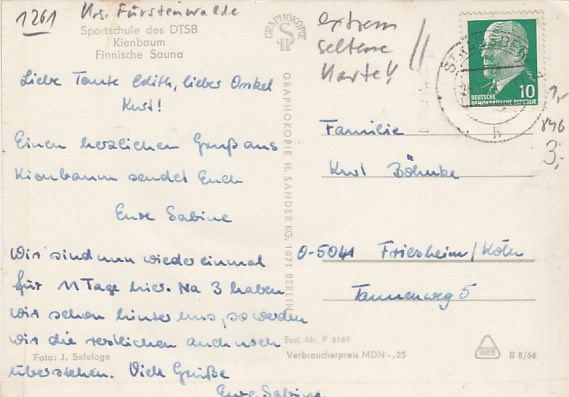 1261 Krs. Fürstenwalde
Sportschule des DTSB
Kienbaum
Finnische Sauna
Liebe Tante Edith, lieber Onkel
Kurt!
Einen herzlichen Gruß aus
Kienbaum sendet Euch
Eure Sabine
Wir sind nun wieder einmal
für 11 Tage hier. Na 3 haben
wir schon hinter uns, so werden
wir die restlichen auch noch
überstehen. Viele Grüße
Eure Sabine
Foto: J. Sefeloge
GRAPHOKOPIE
GRAPHOKOPIE H. SANDER KG, 1071 BERLIN
extrem
seltene
Karte!!
10
DEUTSCHE
DEMOKRATISCHE REPUBLIK
h
846
3,-
Familie
Kurt Böhnke
O-5041 Friesheim/Köln
Tannenweg 5
Best.-Nr. F 3169
Verbraucherpreis MDN -,25
B 8/66